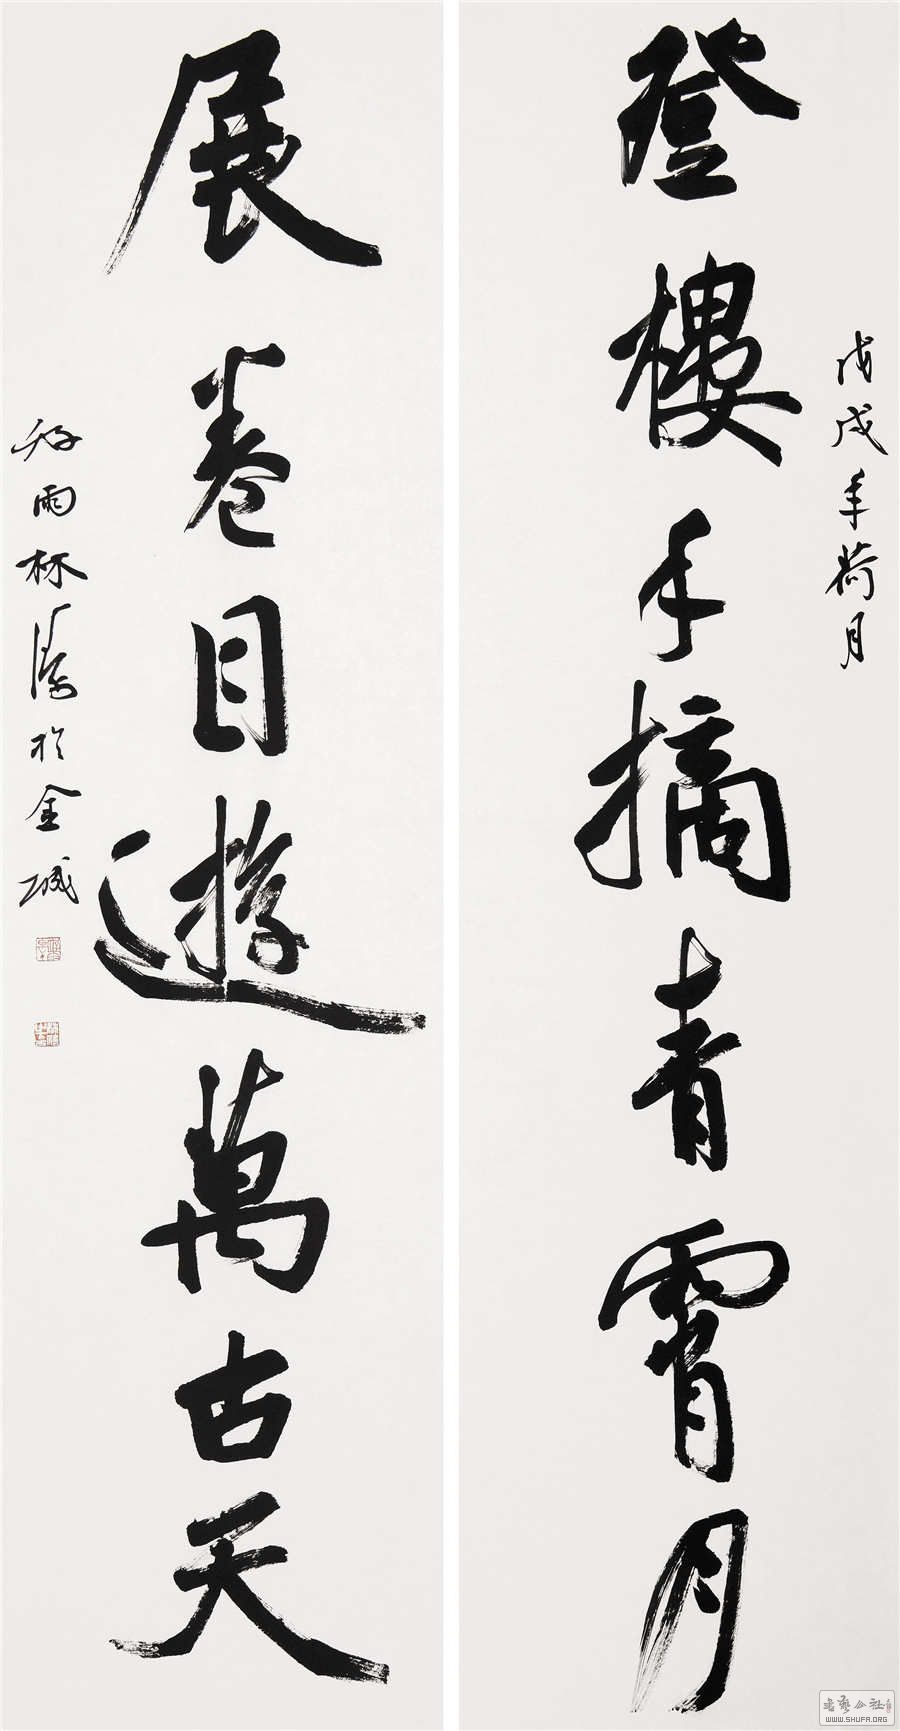 戊戌年荷月
登樓手摘青霄月
展卷目遊萬古天
雨林濤於金城
書藝公社
WWW.SHUFA.ORG